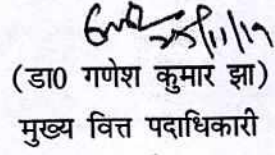 25/11/19
(डा0 गणेश कुमार झा)
मुख्य वित्त पदाधिकारी